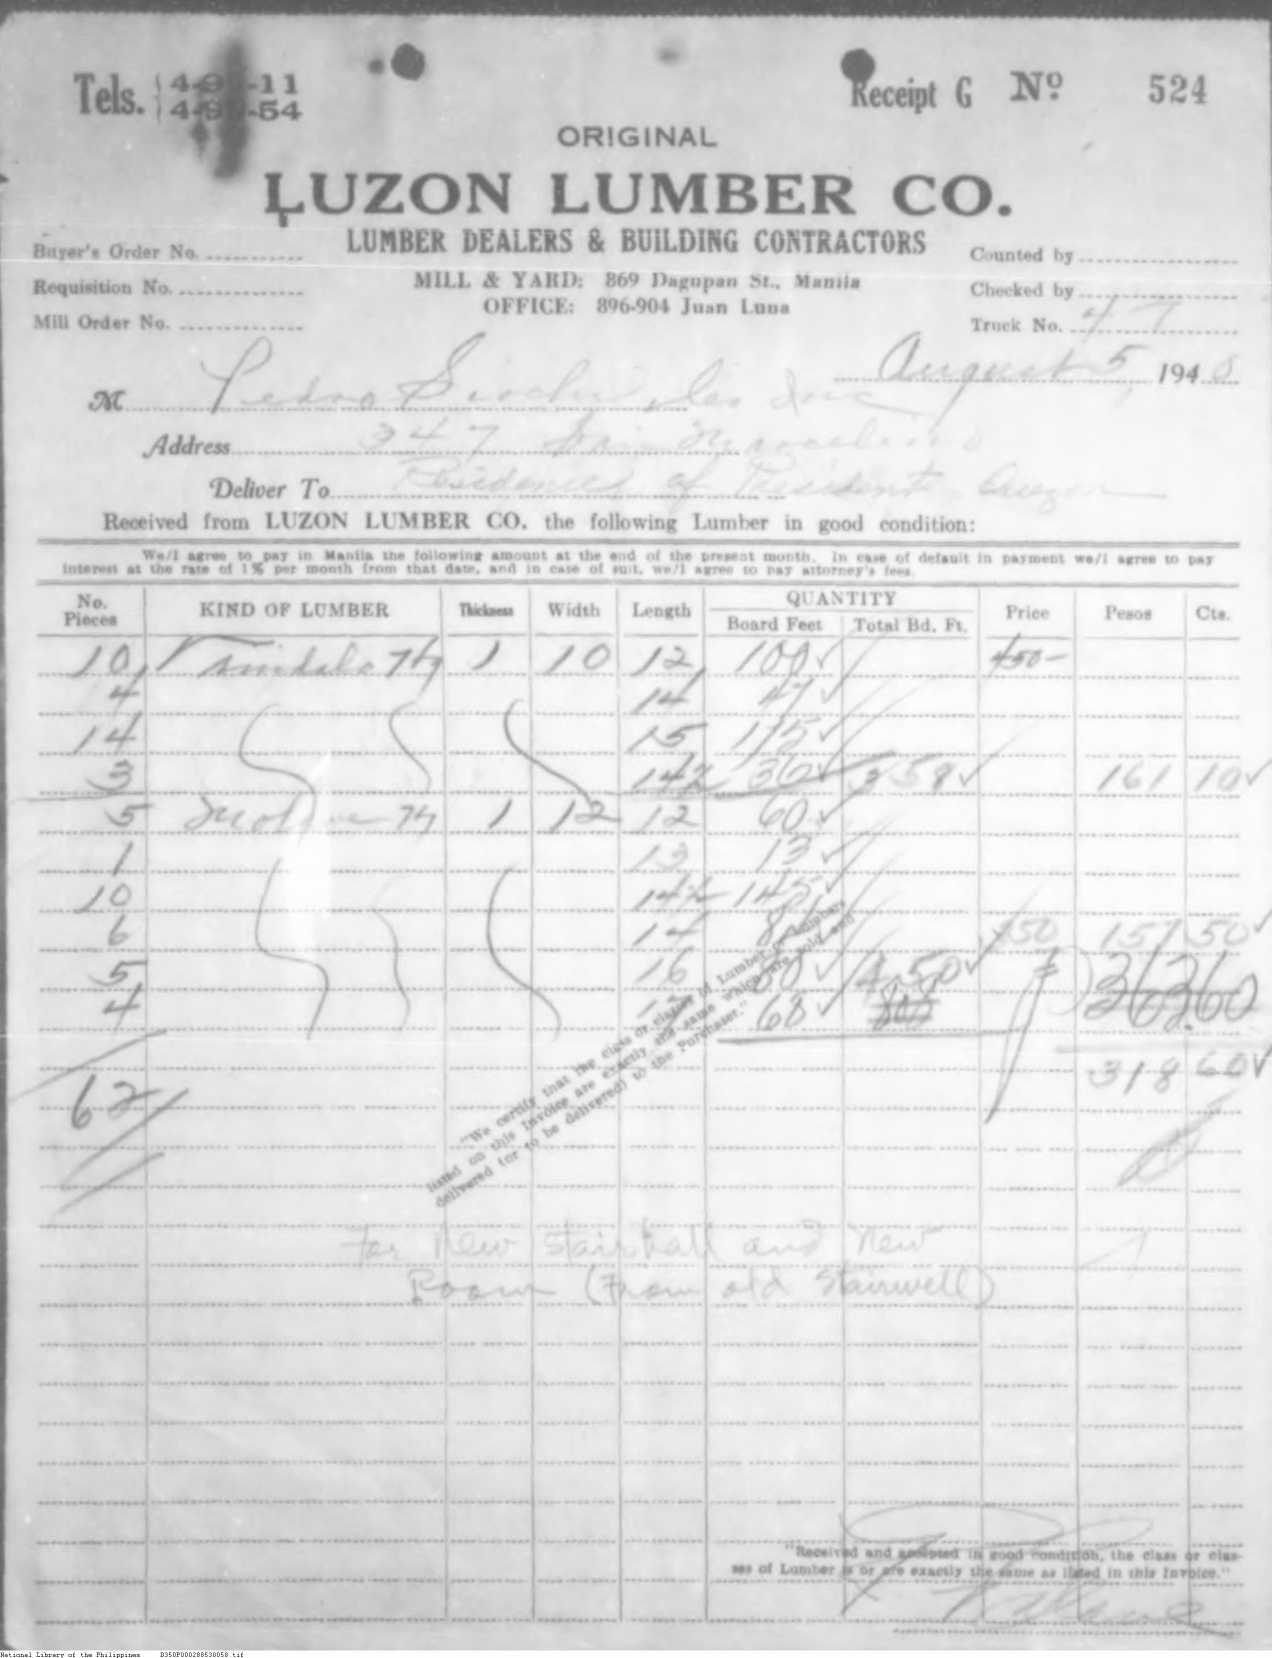 Tels. 4-9 -11
4-9 -54
Receipt G Nº 524
ORIGINAL
LUZON LUMBER CO.
LUMBER DEALERS & BUILDING CONTRACTORS
MILL & YARD: 869 Dagupan St., Manila
OFFICE: 896-904 Juan Luna
Buyer's Order No.
Requisition No.
Mill Order No.
Counted by
Checked by
Truck No. 47
August 5, 1948
M Pedro Inc
Address 347 San Marcelino
Deliver To Residence of President Quezon
Received from LUZON LUMBER CO. the following Lumber in good condition:
We/I agree to pay in Manila the following amount at the end of the present month. In case of default in payment we/I agree to pay
interest at the rate of 1% per month from that date, and in case of suit, we/I agree to pay attorney's fees.
No. Pieces KIND OF LUMBER Thickness Width Length QUANTITY Board Feet Total Bd. Ft. Price Pesos Cts.
10 T&g 1 10 12 100 450-
4 14 47
14 15 175
3 14½ 36 358 161 10
5 T&g 1 12 12 60
1 13 13
10 14½ 145
6 14 84
5 16 80 450 350 157 50
4 17 68 36360
318 60
62
"We certify that the class or classes of Lumber or lumber
listed on this Invoice are exactly the same which are sold and
delivered (or to be delivered) to the Purchaser."
For New Stairhall and New
Room (From old Stairwell)
"Received and accepted in good condition, the class or clas-
ses of Lumber is or are exactly the same as listed in this Invoice."
National Library of the Philippines D350P000288530058.tif